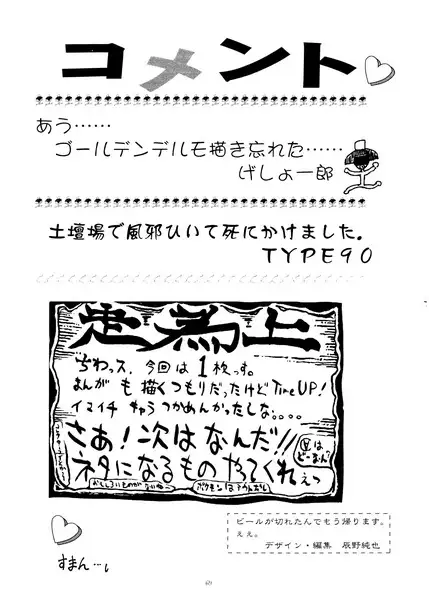 コメント
あう……
ゴールデンデルモ描き忘れた……
げしょ一郎
土壇場で風邪ひいて死にかけました。
TYPE90
走為上
ちわっス、今回は1枚っす。
まんがも描くつもりだったけどTimeUP!
イマイチ きゅうつかめんかったしな。。。。
さあ!次はなんだ!!
ネタになるものやってくれぇっ
ビールが切れたんでもう帰ります。
ええ。
デザイン・編集 辰野純也
すまん…